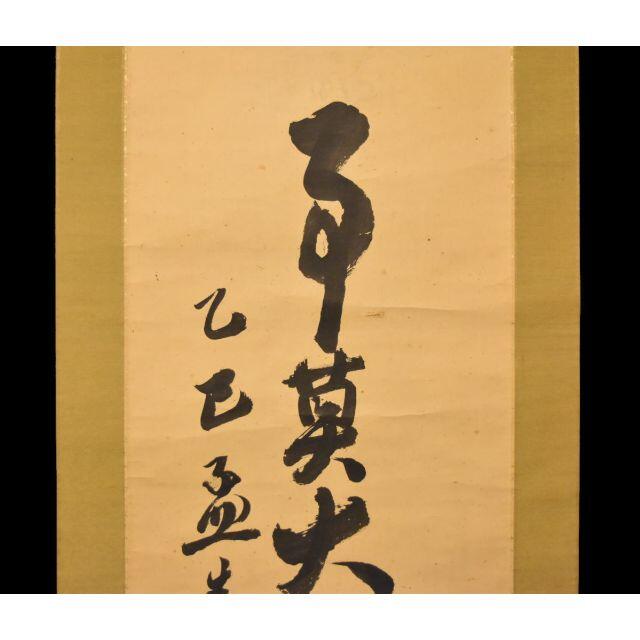 莫大
乙巳孟